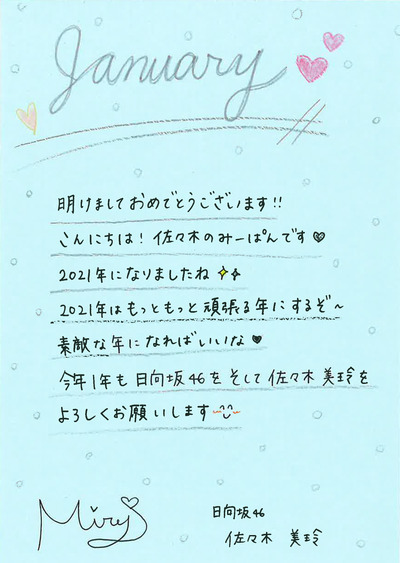 January
明けましておめでとうございます!!
こんにちは! 佐々木のみーぱんです♥
2021年になりましたね✨
2021年はもっともっと頑張る年にするぞ〜
素敵な年になればいいな♥
今年1年も日向坂46をそして佐々木美玲を
よろしくお願いします
Miry
日向坂46
佐々木 美玲